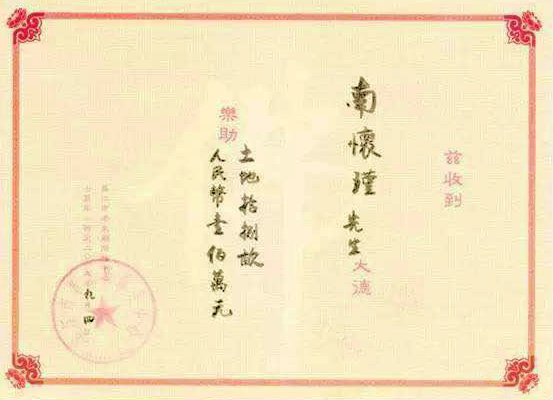 兹收到
南懷瑾先生大德
樂助
土地拾捌畝
人民幣壹佰萬元